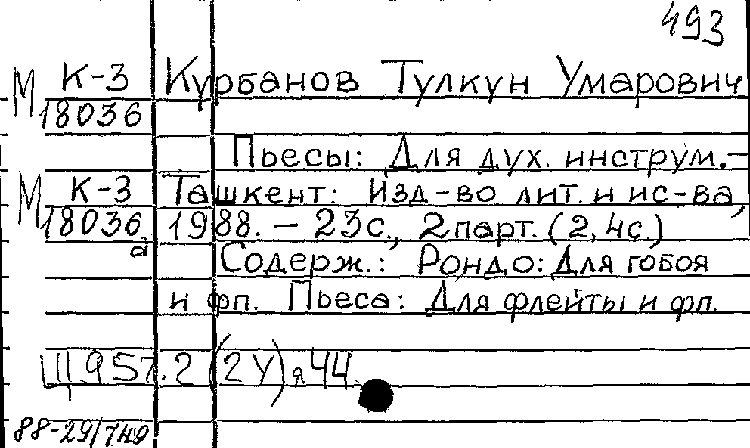 493
М К-3 Курбанов Тулкун Умарович
18036
Пьесы: Для дух. инструм.–
М К-3 Ташкент: Изд-во лит. и ис-ва,
18036 1988. – 23с., 2парт. (2,4с.)
а Содерж.: Рондо: Для гобоя
и фп. Пьеса: Для флейты и фп.
Щ957.2(2У)я44